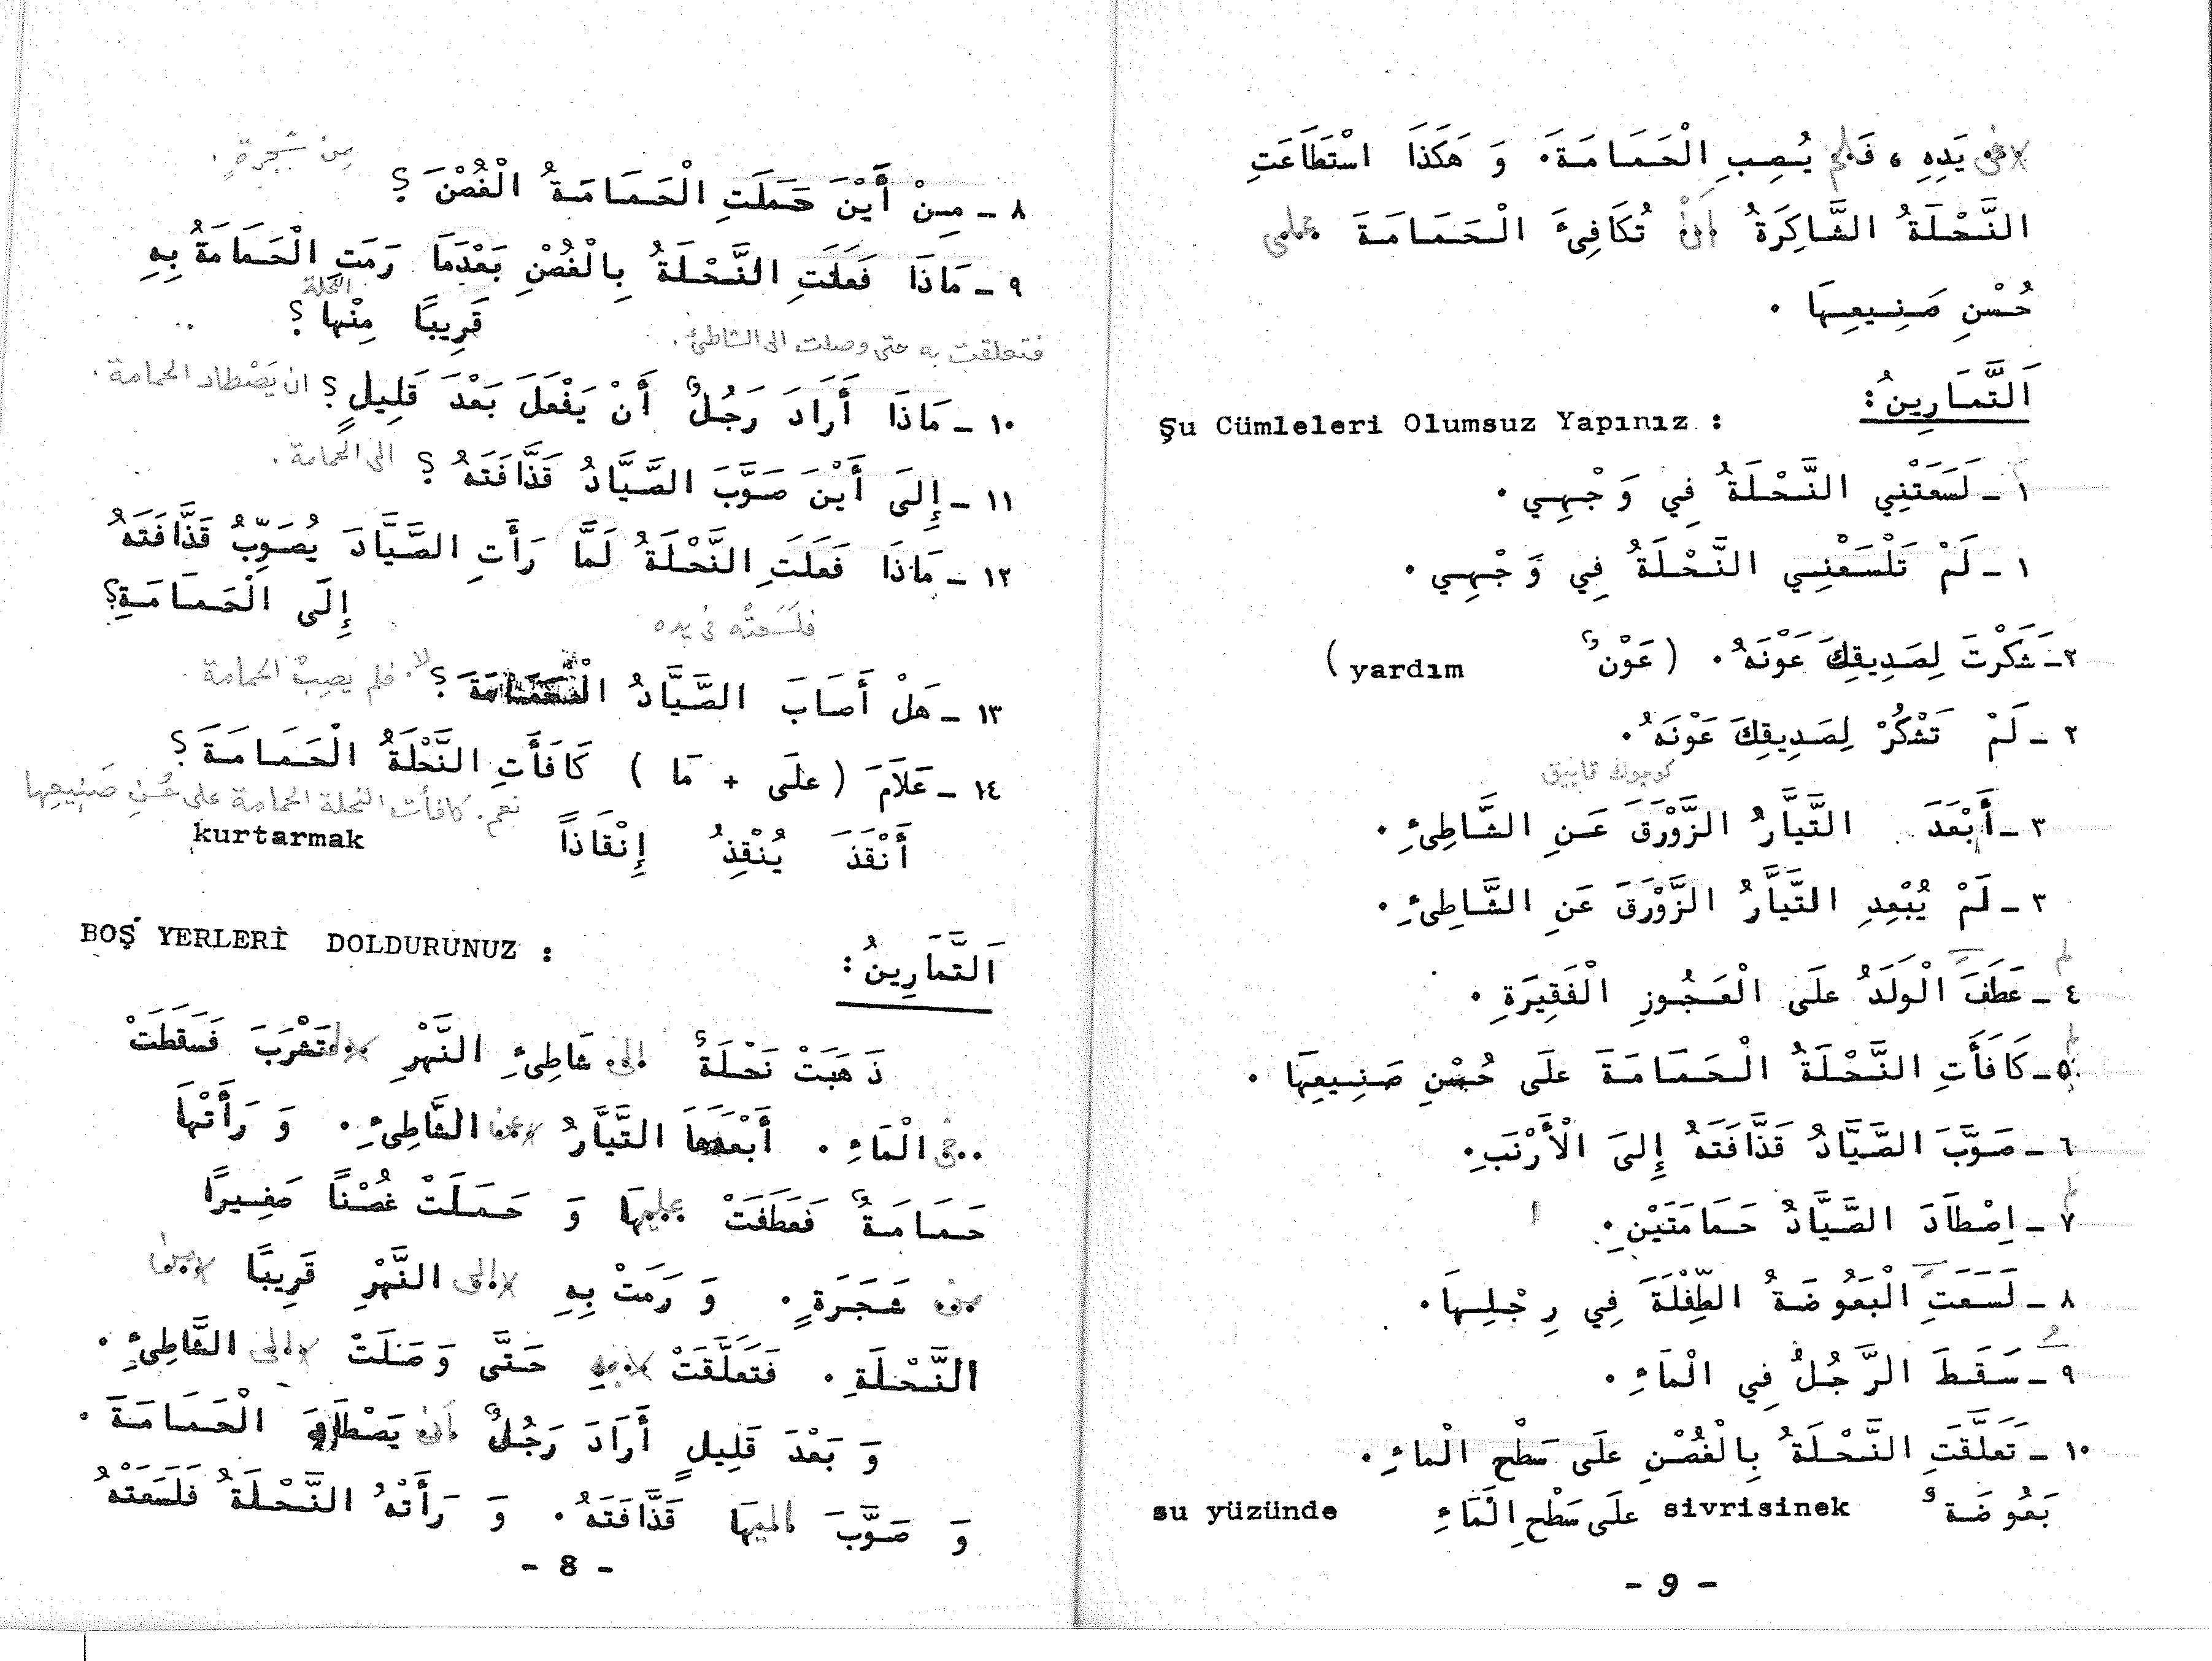 من شجرةٍ .
٨ ـ مِنْ أَيْنَ حَمَلَتِ الْحَمَامَةُ الْغُصْنَ ؟
٩ ـ مَاذَا فَعَلَتِ النَّحْلَةُ بِالْغُصْنِ بَعْدَمَا رَمَتِ الْحَمَامَةُ بِهِ
النحلة
قَرِيبًا مِنْها ؟
فتعلقت به حتى وصلت الى الشاطئ .
١٠ ـ مَاذَا أَرَادَ رَجُلٌ أَنْ يَفْعَلَ بَعْدَ قَلِيلٍ ؟ ان يَصْطاد الحمامة .
١١ ـ إِلَى أَيْنَ صَوَّبَ الصَّيَّادُ قَذَّافَتَهُ ؟ الى الحمامة .
١٢ ـ مَاذَا فَعَلَتِ النَّحْلَةُ لَمَّا رَأَتِ الصَّيَّادَ يُصَوِّبُ قَذَّافَتَهُ
إِلَى الْحَمَامَةِ؟
فلَسَعتْه فى يده
١٣ ـ هَلْ أَصَابَ الصَّيَّادُ الْحَمَامَةَ ؟ لا. فلم يصِبْ الحمامة .
١٤ ـ عَلاَمَ ( علَى + مَا ) كَافَأَتِ النَّحْلَةُ الْحَمَامَةَ ؟
نعم. كافأت النحلة الحمامة على حُسْنِ صَنِيعِها
أَنْقَذَ يُنْقِذُ إِنْقَاذاً kurtarmak
اَلتَّمَارِينُ : BOŞ YERLERİ DOLDURUNUZ :
ذَهَبَتْ نَحْلَةٌ الى شَاطِئِ النَّهْرِ لِتَشْرَبَ فَسَقَطَتْ
فى الْمَاءِ . أَبْعَدَهَا التَّيَّارُ عن الشَّاطِئِ . وَ رَأَتْهَا
حَمَامَةٌ فَعَطَفَتْ عليهَا وَ حَمَلَتْ غُصْناً صَغِيرًا
من شَجَرَةٍ . وَ رَمَتْ بِهِ الى النَّهْرِ قَرِيبًا من
النَّحْلَةِ . فَتَعَلَّقَتْ بِهِ حَتَّى وَصَلَتْ الى الشَّاطِئِ .
وَ بَعْدَ قَلِيلٍ أَرَادَ رَجُلٌ اَنْ يَصْطَادَ الْحَمَامَةَ .
وَ صَوَّبَ اليهَا قَذَّافَتَهُ . وَ رَأَتْهُ النَّحْلَةُ فَلَسَعَتْهُ
- 8 -
فى يَدِهِ ، فَلم يُصِبِ الْحَمَامَةَ . وَ هَكَذَا اسْتَطَاعَتِ
النَّحْلَةُ الشَّاكِرَةُ اَنْ تُكَافِئَ الْحَمَامَةَ على
حُسْنِ صَنِيعِهَا .
اَلتَّمَارِينُ : Şu Cümleleri Olumsuz Yapınız :
١ ـ لَسَعَتْنِي النَّحْلَةُ فِي وَجْهِي .
١ ـ لَمْ تَلْسَعْنِي النَّحْلَةُ فِي وَجْهِي .
٢ـ شَكَرْتَ لِصَدِيقِكَ عَوْنَهُ . ( عَوْنٌ yardım )
٢ ـ لَمْ تَشْكُرْ لِصَدِيقِكَ عَوْنَهُ .
كوچوك قاييق
٣ ـ أَبْعَدَ التَّيَّارُ الزَّوْرَقَ عَنِ الشَّاطِئِ .
٣ ـ لَمْ يُبْعِدِ التَّيَّارُ الزَّوْرَقَ عَنِ الشَّاطِئِ .
لم
٤ ـ عَطَفَ الْوَلَدُ علَى الْعَجُوزِ الْفَقِيرَةِ .
لم
٥ـ كَافَأَتِ النَّحْلَةُ الْحَمَامَةَ علَى حُسْنِ صَنِيعِهَا .
٦ ـ صَوَّبَ الصَّيَّادُ قَذَّافَتَهُ إِلىَ الْأَرْنَبِ .
لم
٧ ـ اِصْطَادَ الصَّيَّادُ حَمَامَتَيْنِ .
٨ ـ لَسَعَتِ الْبَعُوضَةُ الطِّفْلَةَ فِي رِجْلِهَا .
٩ ـ سَقَطَ الرَّجُلُ فِي الْمَاءِ .
١٠ ـ تَعَلَّقَتِ النَّحْلَةُ بِالْغُصْنِ علَى سَطْحِ الْماءِ .
بَعُوضَةٌ sivrisinek علَى سَطْحِ الْمَاءِ su yüzünde
- 9 -